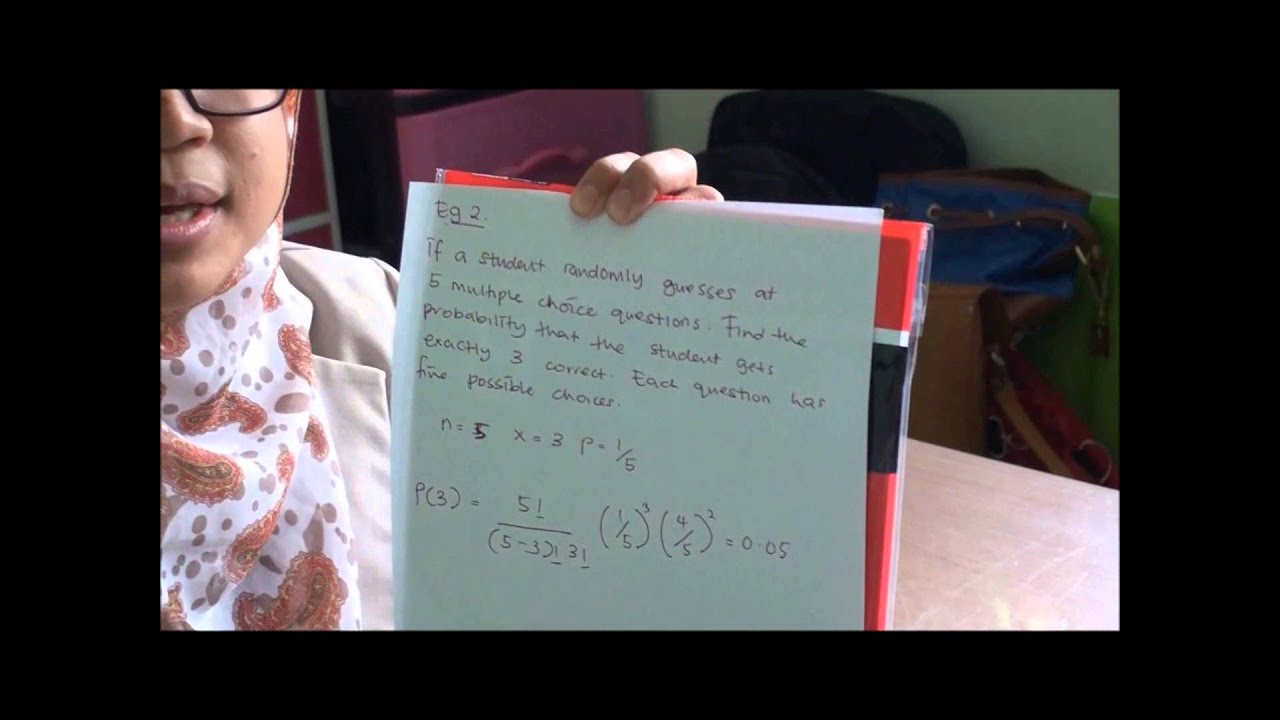 Eg 2.
If a student randomly guesses at
5 multiple choice questions. Find the
probability that the student gets
exactly 3 correct. Each question has
five possible choices.
n = 5 x = 3 p = 1/5
P(3) = 5! / (5-3)! 3! (1/5)^3 (4/5)^2 = 0.05